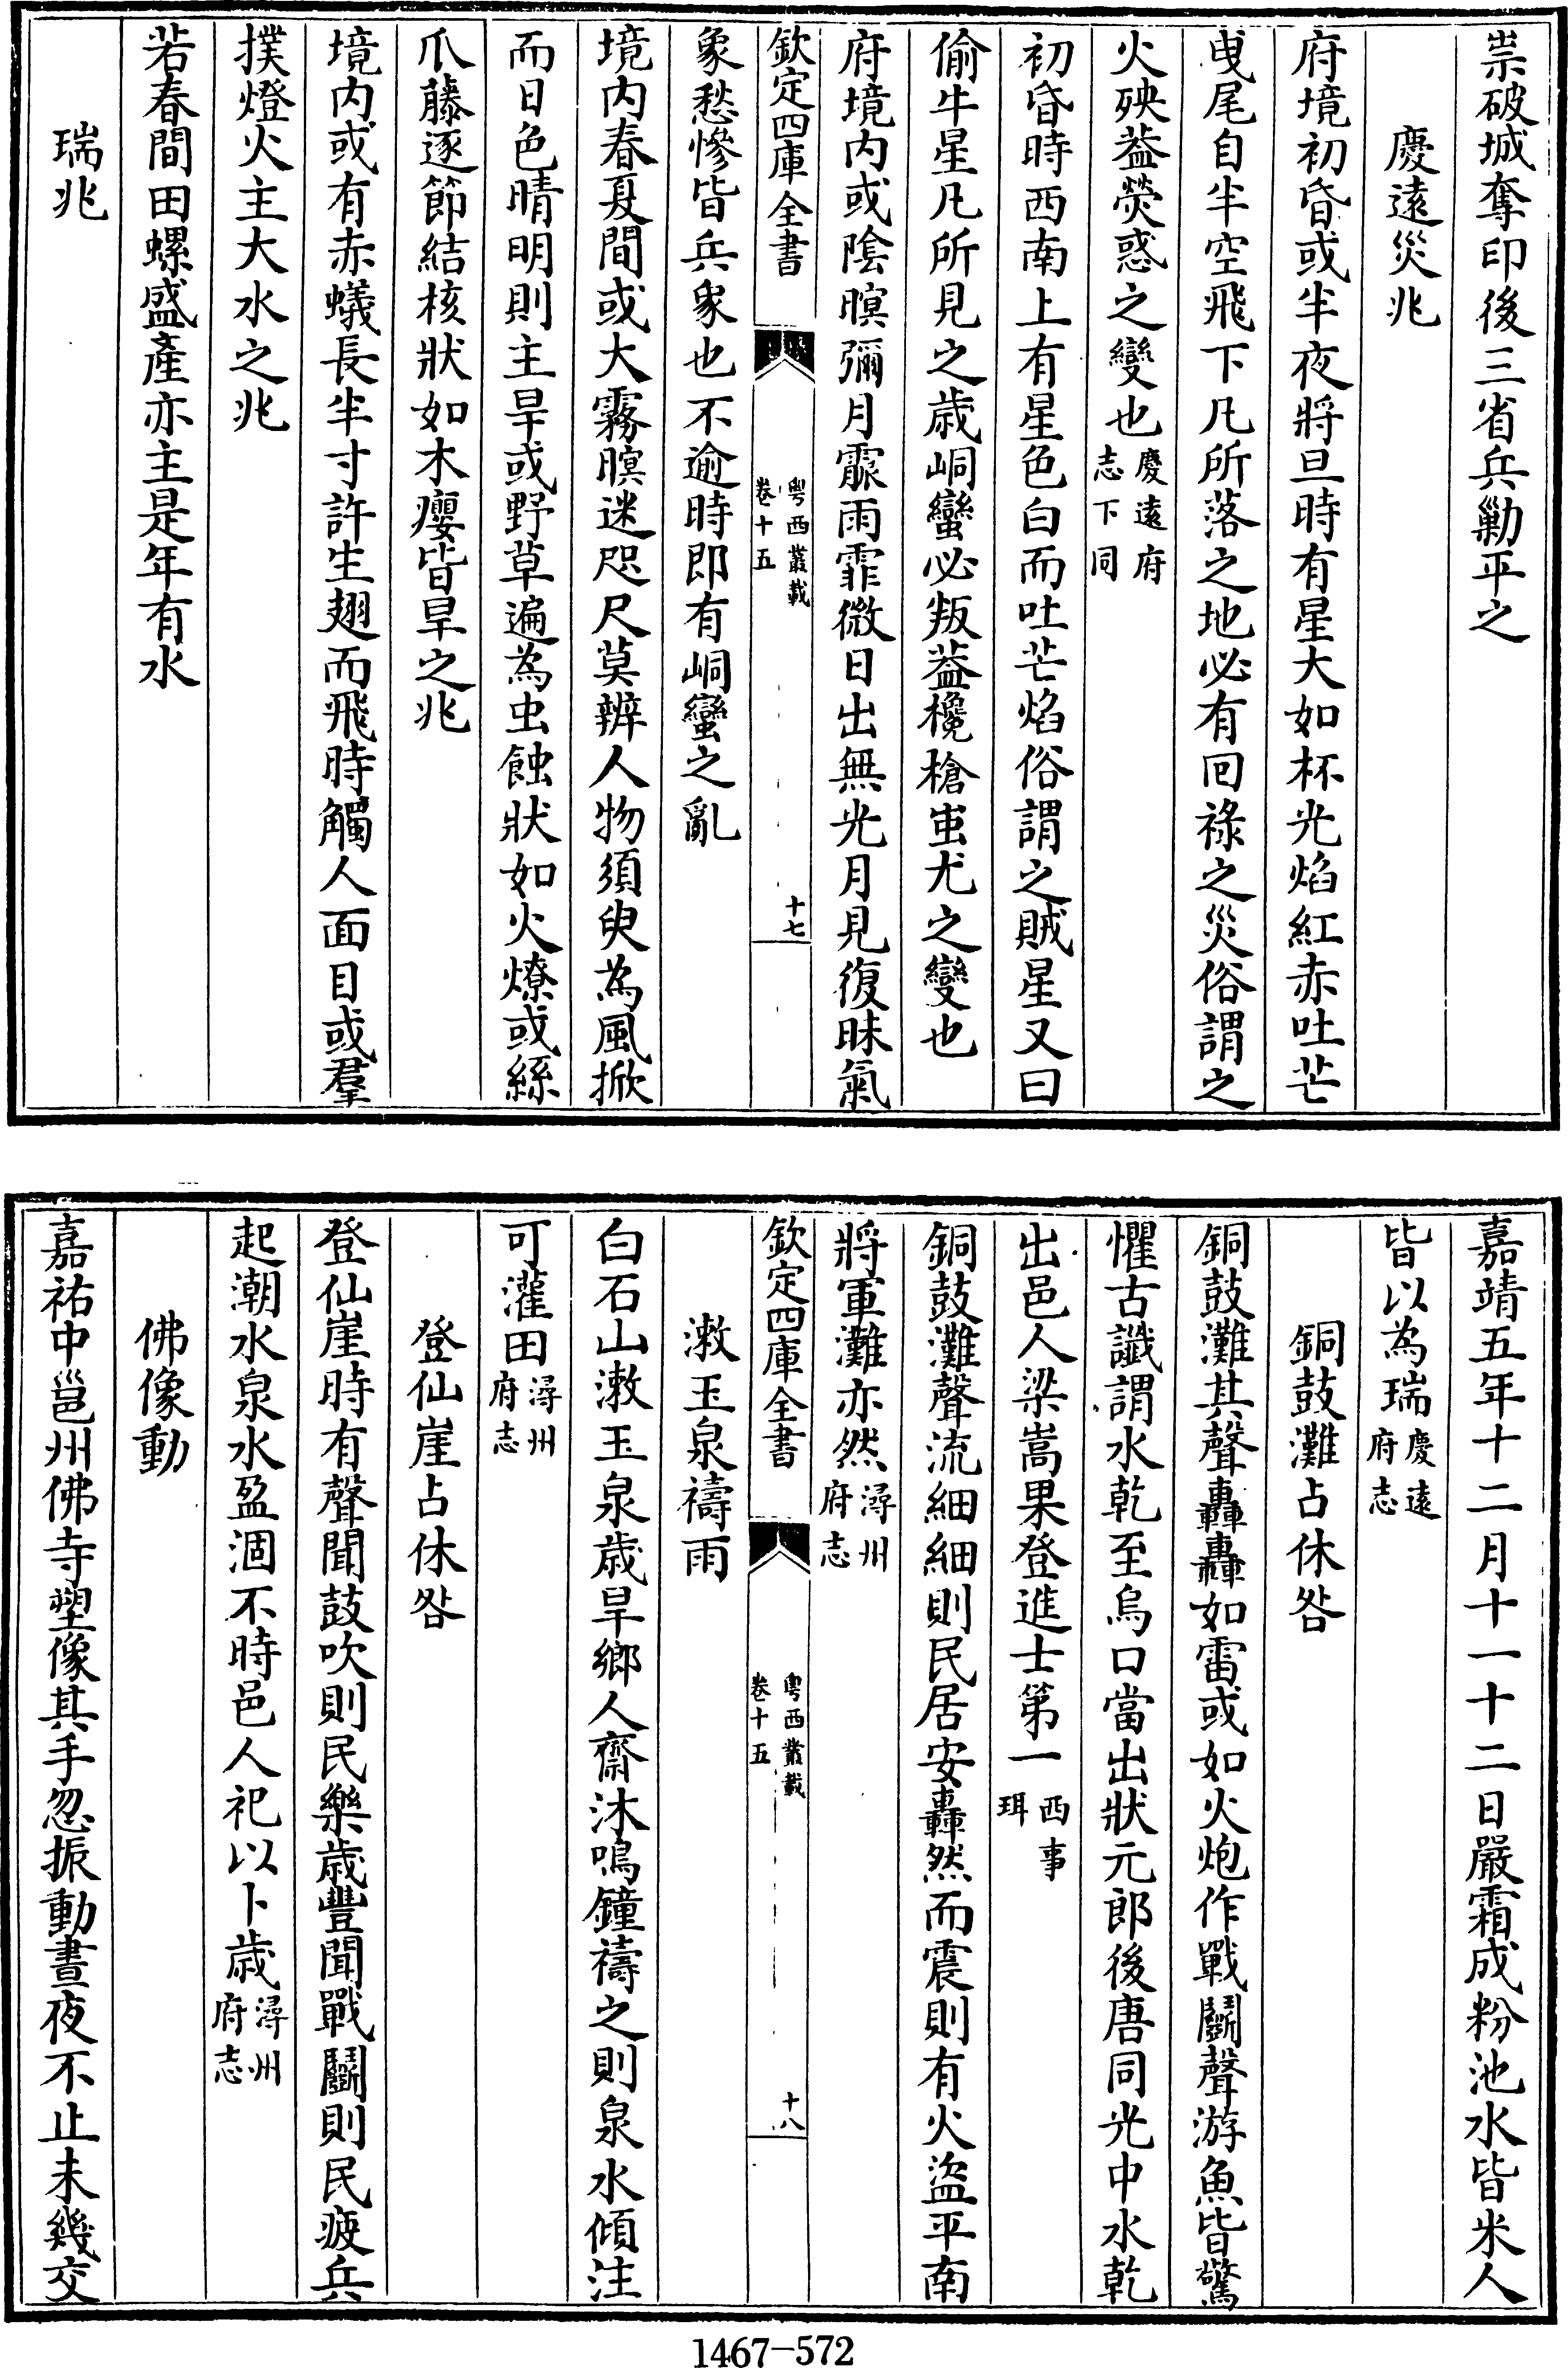 祟破城奪印後三省兵勦平之
慶遠災兆
府境初昏或半夜將旦時有星大如杯光焰紅赤吐芒
曳尾自半空飛下凡所落之地必有回祿之災俗謂之
火殃葢熒惑之變也慶遠府志下同
初昏時西南上有星色白而吐芒焰俗謂之賊星又曰
偷牛星凡所見之歲峒蠻必叛葢欃槍蚩尤之變也
府境内或陰暝彌月霢雨霏微日出無光月見復昧氣
欽定四庫全書
粤西叢載
卷十五
十七
象愁慘皆兵象也不逾時即有峒蠻之亂
境内春夏間或大霧暝迷咫尺莫辨人物須臾為風掀
而日色晴明則主旱或野草遍為虫蝕狀如火燎或絲
爪藤逐節結核狀如木癭皆旱之兆
境内或有赤蟻長半寸許生翅而飛時觸人面目或羣
撲燈火主大水之兆
若春間田螺盛產亦主是年有水
瑞兆
嘉靖五年十二月十一十二日嚴霜成粉池水皆米人
皆以為瑞慶遠府志
銅鼓灘占休咎
銅鼓灘其聲轟轟如雷或如火炮作戰鬭聲游魚皆驚
懼古讖謂水乾至烏口當出狀元郎後唐同光中水乾
出邑人梁嵩果登進士第一西事珥
銅鼓灘聲流細細則民居安轟然而震則有火盜平南
將軍灘亦然潯州府志
欽定四庫全書
粤西叢載
卷十五
十八
漱玉泉禱雨
白石山漱玉泉歲旱鄉人齋沐鳴鐘禱之則泉水傾注
可灌田潯州府志
登仙崖占休咎
登仙崖時有聲聞鼓吹則民樂歲豐聞戰鬭則民疲兵
起潮水泉水盈涸不時邑人祀以卜歲潯州府志
佛像動
嘉祐中邕州佛寺塑像其手忽振動晝夜不止未幾交
1467-572